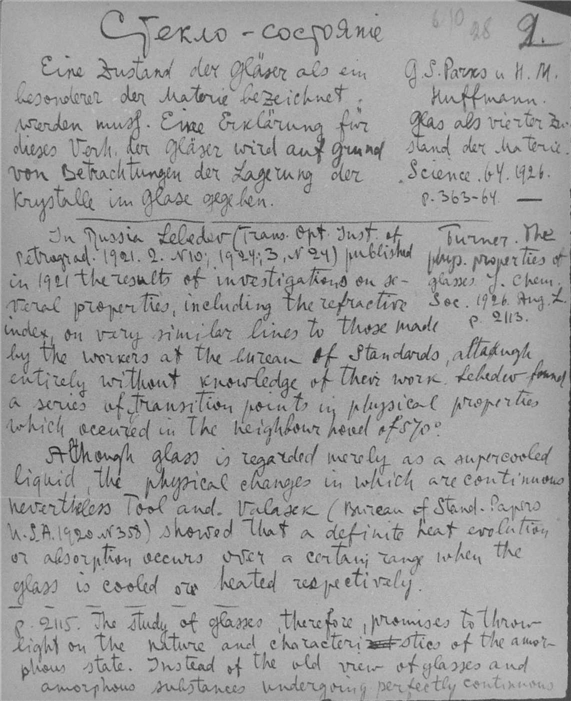 6/10 28 2.
Стекло-состояние
Eine Zustand der Gläser als ein
besonderer der Materie bezeichnet
werden muß. Eine Erklärung für
dieses Verh. der Gläser wird auf Grund
von Betrachtungen der Lagerung der
Krystalle im Glase gegeben.
G. S. Parks u H. M.
Huffmann.
Glas als vierter Zu-
stand der Materie.
Science. 64. 1926.
p. 363-64. —
In Russia Lebedev (Trans. Opt. Inst. of
Petrograd. 1921. 2. N10; 1924; 3, N 24) published
in 1921 the results of investigations on se-
veral properties, including the refractive
index, on very similar lines to those made
by the workers at the bureau of Standards, although
entirely without knowledge of their work. Lebedev found
a series of transition points in physical properties
which occured in the neighbour hood of 570°
Turner. The
phys. properties of
glasses J. Chem.
Soc. 1926. Aug.
p. 2113.
Although glass is regarded merely as a supercooled
liquid, the physical changes in which are continuous
nevertheless Tool and Valasek (Bureau of Stand. Papers
U.S.A. 1920. N 358) showed that a definite heat evolution
or absorption occurs over a certain range when the
glass is cooled or heated respectively.
p. 2115. The study of glasses, therefore, promises to throw
light on the nature and characteristics of the amor-
phous state. Instead of the old view of glasses and
amorphous substances undergoing perfectly continuous